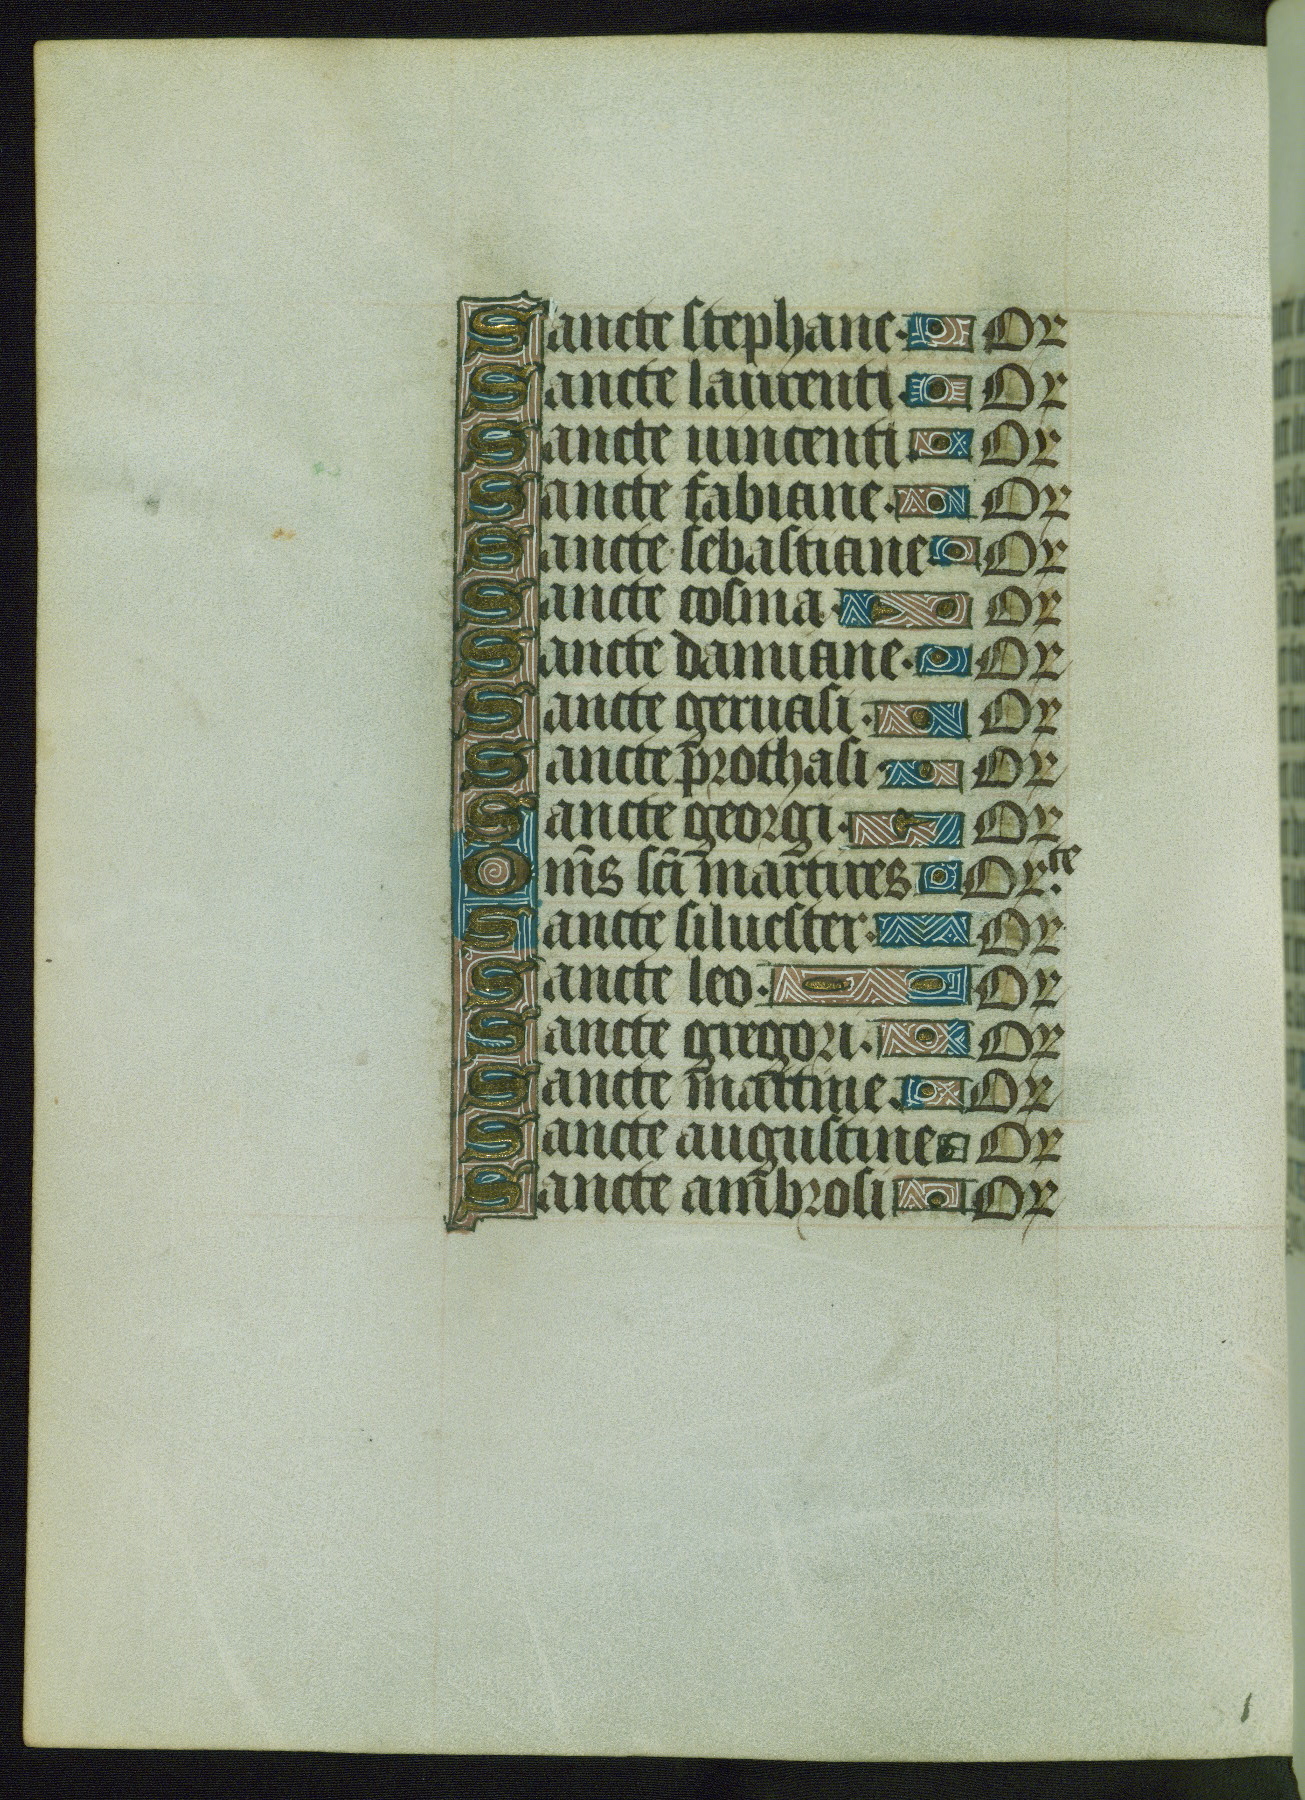 Sancte stephane. Or
Sancte laurenti. Or
Sancte uincenti Or
Sancte fabiane. Or
Sancte sebastiane Or
Sancte cosma. Or
Sancte damiane. Or
Sancte geruasi. Or
Sancte prothasi Or
Sancte georgi. Or
Om̄s sc̄i martires Or.te
Sancte siluester. Or
Sancte leo. Or
Sancte gregori. Or
Sancte martine. Or
Sancte augustine Or
Sancte ambrosi Or